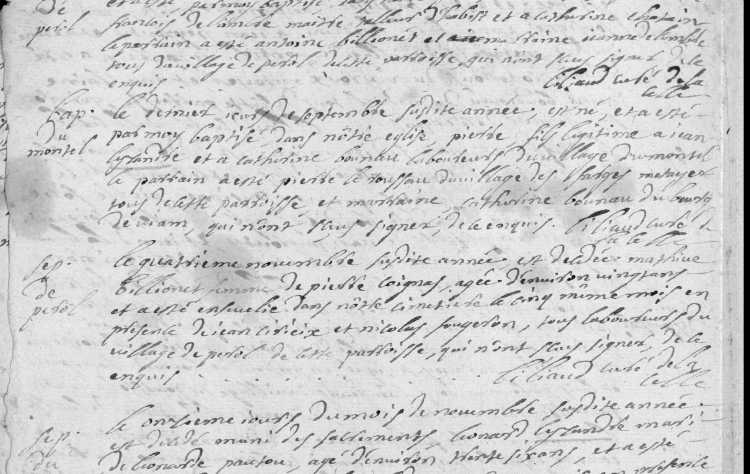 De
perol
françois Delandre maitre
et a catherine
le parrain a esté antoine billionet et
tous du village de perol de cette parroisse, qui n'ont sçus signer de ce
enquis
Ciliaud curé de la
celle
bap.
du
montel
le dernier jours de septembre susdite année, est né, et a esté
par moy baptisé, dans nôtre eglise, pierre fils legitime a jean
lejandre et a catherine bounau laboureurs du village du montel
le parrain a esté pierre le roussau du village des farges metayer
tous de cette parroisse, et marraine catherine bounau du bourg
de viam, qui n'ont sçus signer, de ce enquis. Ciliaud curé de
la celle
sep.
de
perol
le quatrieme novembre susdite année est decedée mathive
billionet femme de pierre coignas, agée d'environ vingt ans
et a esté ensevelie dans nôtre cimetiere le cinq même mois en
presence de jean cirieix et nicolas fougeron, tous laboureurs du
village de perol de cette parroisse, qui n'ont sçus signer, de ce
enquis
Ciliaud curé de la
celle
sep.
du
le onzieme jours du mois de novembre susdite année
est decedé muni des sacrements leonard lejandre mari
de leonarde pautou, agé d'environ trente six ans, et a esté